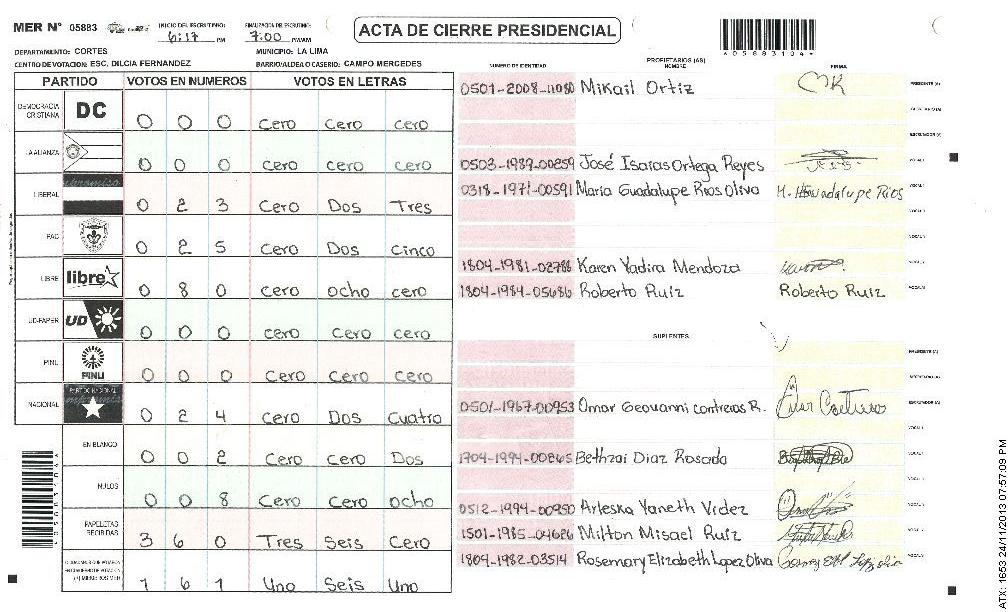 MER Nº 05883 INICIO DEL ESCRUTINIO: 6:17 PM FINALIZACION DEL ESCRUTINIO: 7:00 PM/AM ACTA DE CIERRE PRESIDENCIAL
*05883104*
DEPARTAMENTO: CORTES MUNICIPIO: LA LIMA
CENTRO DE VOTACION: ESC. DILCIA FERNANDEZ BARRIO/ALDEA O CASERIO: CAMPO MERCEDES
PARTIDO VOTOS EN NUMEROS VOTOS EN LETRAS
DEMOCRACIA CRISTIANA DC 0 0 0 Cero Cero Cero
LA ALIANZA 0 0 0 cero cero cero
LIBERAL 0 2 3 Cero Dos Tres
PAC 0 2 5 Cero Dos Cinco
LIBRE libre 0 8 0 Cero ocho cero
UD-FAPER UD 0 0 0 cero cero cero
PINU PINU 0 0 0 Cero Cero Cero
NACIONAL PARTIDO NACIONAL 0 2 4 Cero Dos Cuatro
EN BLANCO 0 0 2 Cero Cero Dos
NULOS 0 0 8 Cero Cero ocho
PAPELETAS RECIBIDAS 3 6 0 Tres Seis Cero
1 6 1 Uno Seis Uno
PROPIETARIOS (AS)
NUMERO DE IDENTIDAD NOMBRE FIRMA
0501-2008-11080 Mikail Ortiz PRESIDENTE (A)
SECRETARIO (A)
ESCRUTADOR (A)
0503-1987-00859 José Isaias Ortega Reyes VOCAL
0318-1971-00591 Maria Guadalupe Rios Oliva M. Guadalupe Rios VOCAL
VOCAL
VOCAL
1804-1981-02786 Karen Yadira Mendoza VOCAL
1804-1984-05686 Roberto Ruiz Roberto Ruiz VOCAL
SUPLENTES
PRESIDENTE (A)
SECRETARIO (A)
0501-1967-00953 Omar Geovanni contreras R. ESCRUTADOR (A)
VOCAL
1704-1994-00865 Bethzai Diaz Rosada VOCAL
VOCAL
0512-1994-00950 Arleska Yaneth Videz VOCAL
1501-1985-04626 Milton Misael Ruiz VOCAL
1804-1982-03514 Rosemary Elizabeth Lopez Oliva VOCAL
ATX: 1653 24/11/2013 07:57:09 PM